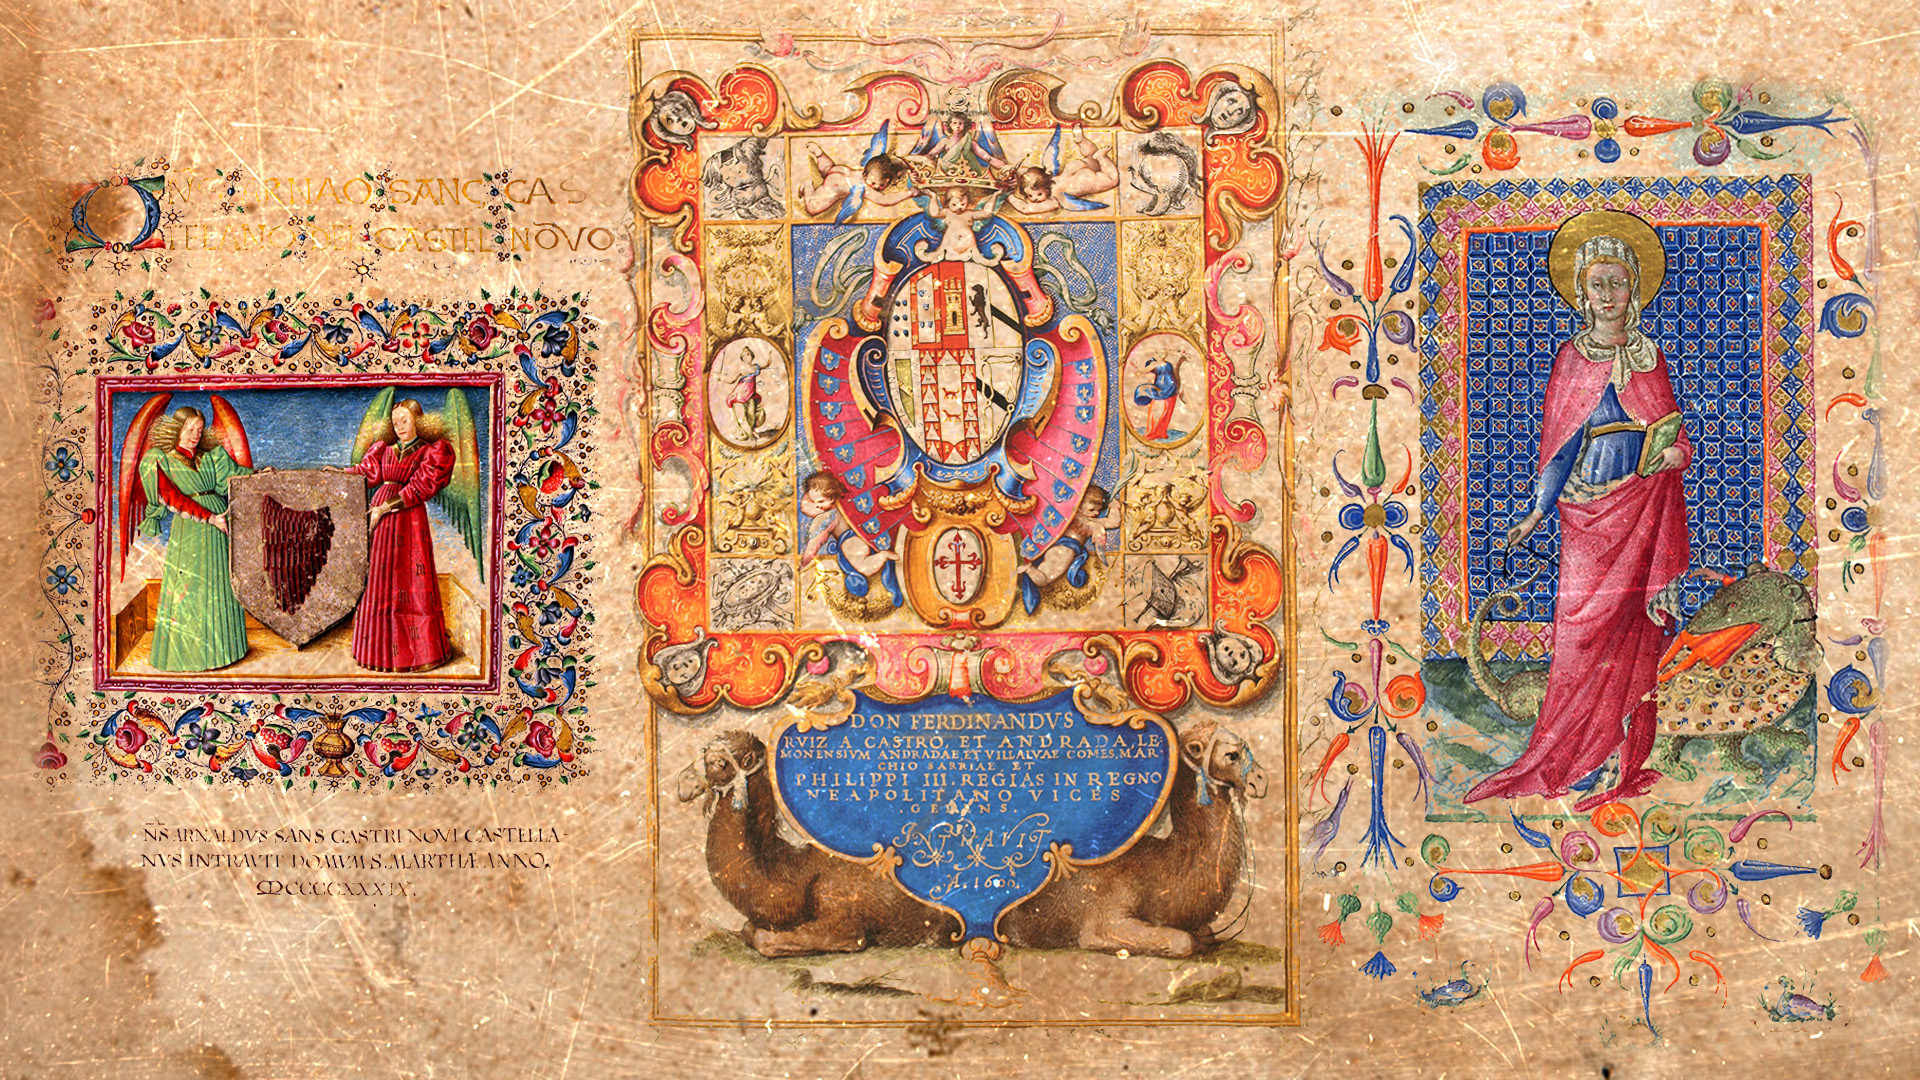 SANC CAS
CASTEL NŌVO
N̄S ARNALDVS SANS CASTRI NOVI CASTELLA-
NVS INTRAVIT DOMVM S. MARTHÆ ANNO,
MCCCCXXXIX.
DON FERDINANDVS
RVIZ A CASTRO ET ANDRADA, LE-
MONENSIVM ANDRADAE, ET VILLALVAE COMES, MAR-
CHIO SARRIAE ET
PHILIPPI III. REGIAS IN REGNO
NEAPOLITANO VICES
GERENS.
INTRAVIT
A. 1600.